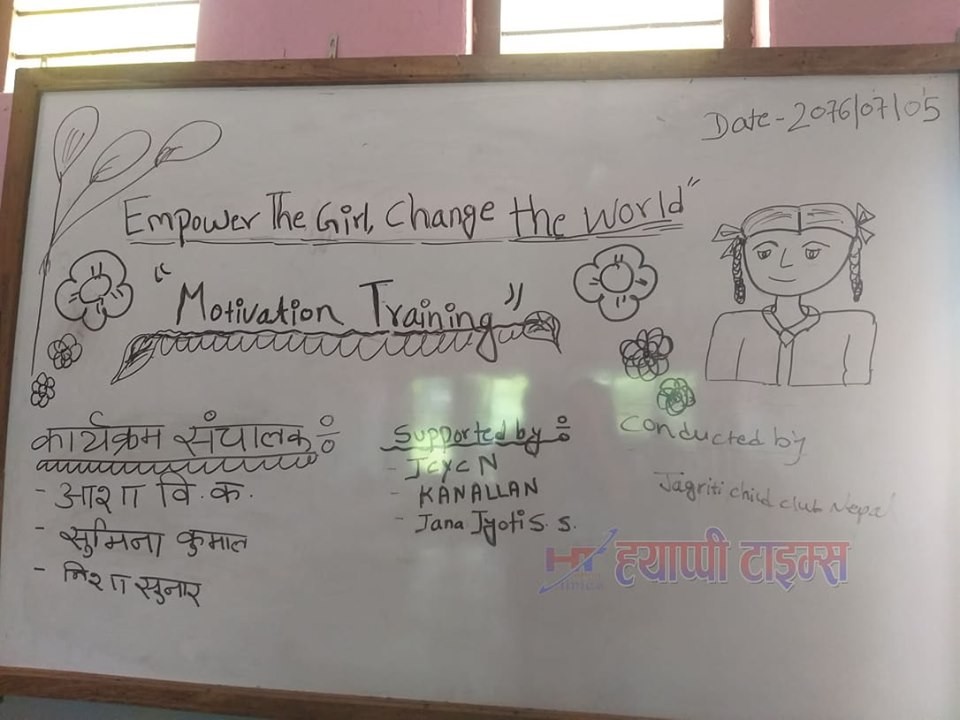 Date - 2076/07/05
Empower The Girl, Change the World"
"Motivation Training"
कार्यक्रम संचालक ÷
- आशा वि. क.
- सुमिना कुमाल
- निशा सुनार
Supported by ÷
- JCYCN
- KANALLAN
- Jana Jyoti S. S.
Conducted by
Jagriti child club Nepal
HT हयाप्पी टाइम्स